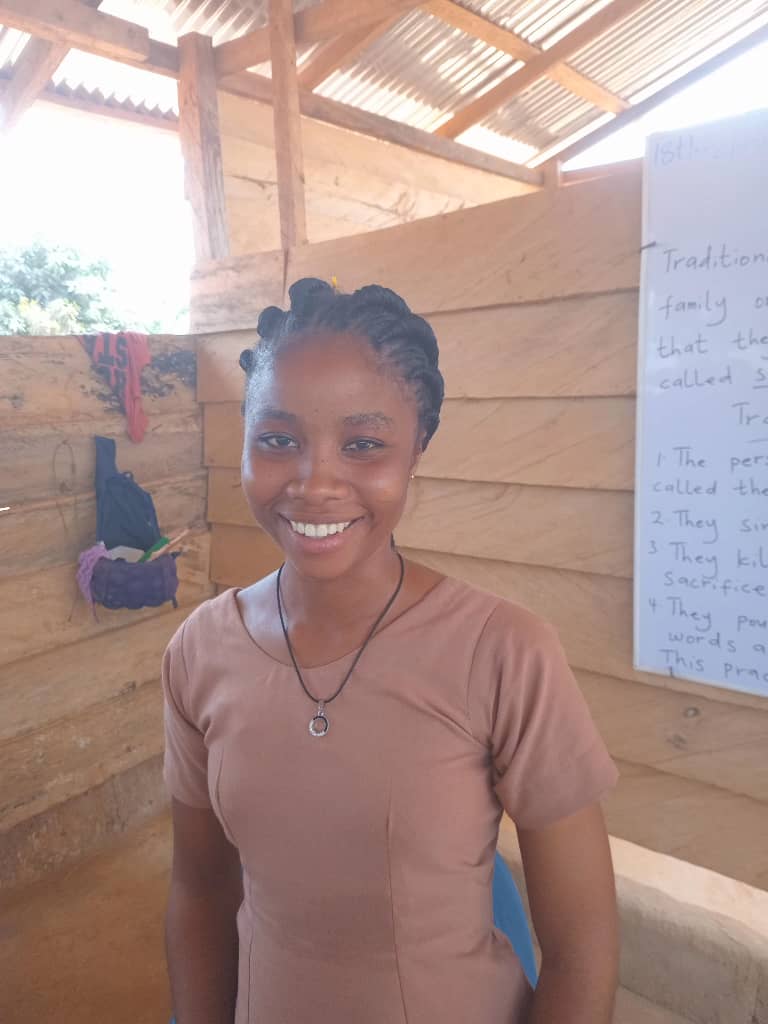 18th
Tradition
family o
that the
called s
Tra
1. The pers
called the
2. They sin
3. They kil
sacrifice
4. They pou
words a
This prac